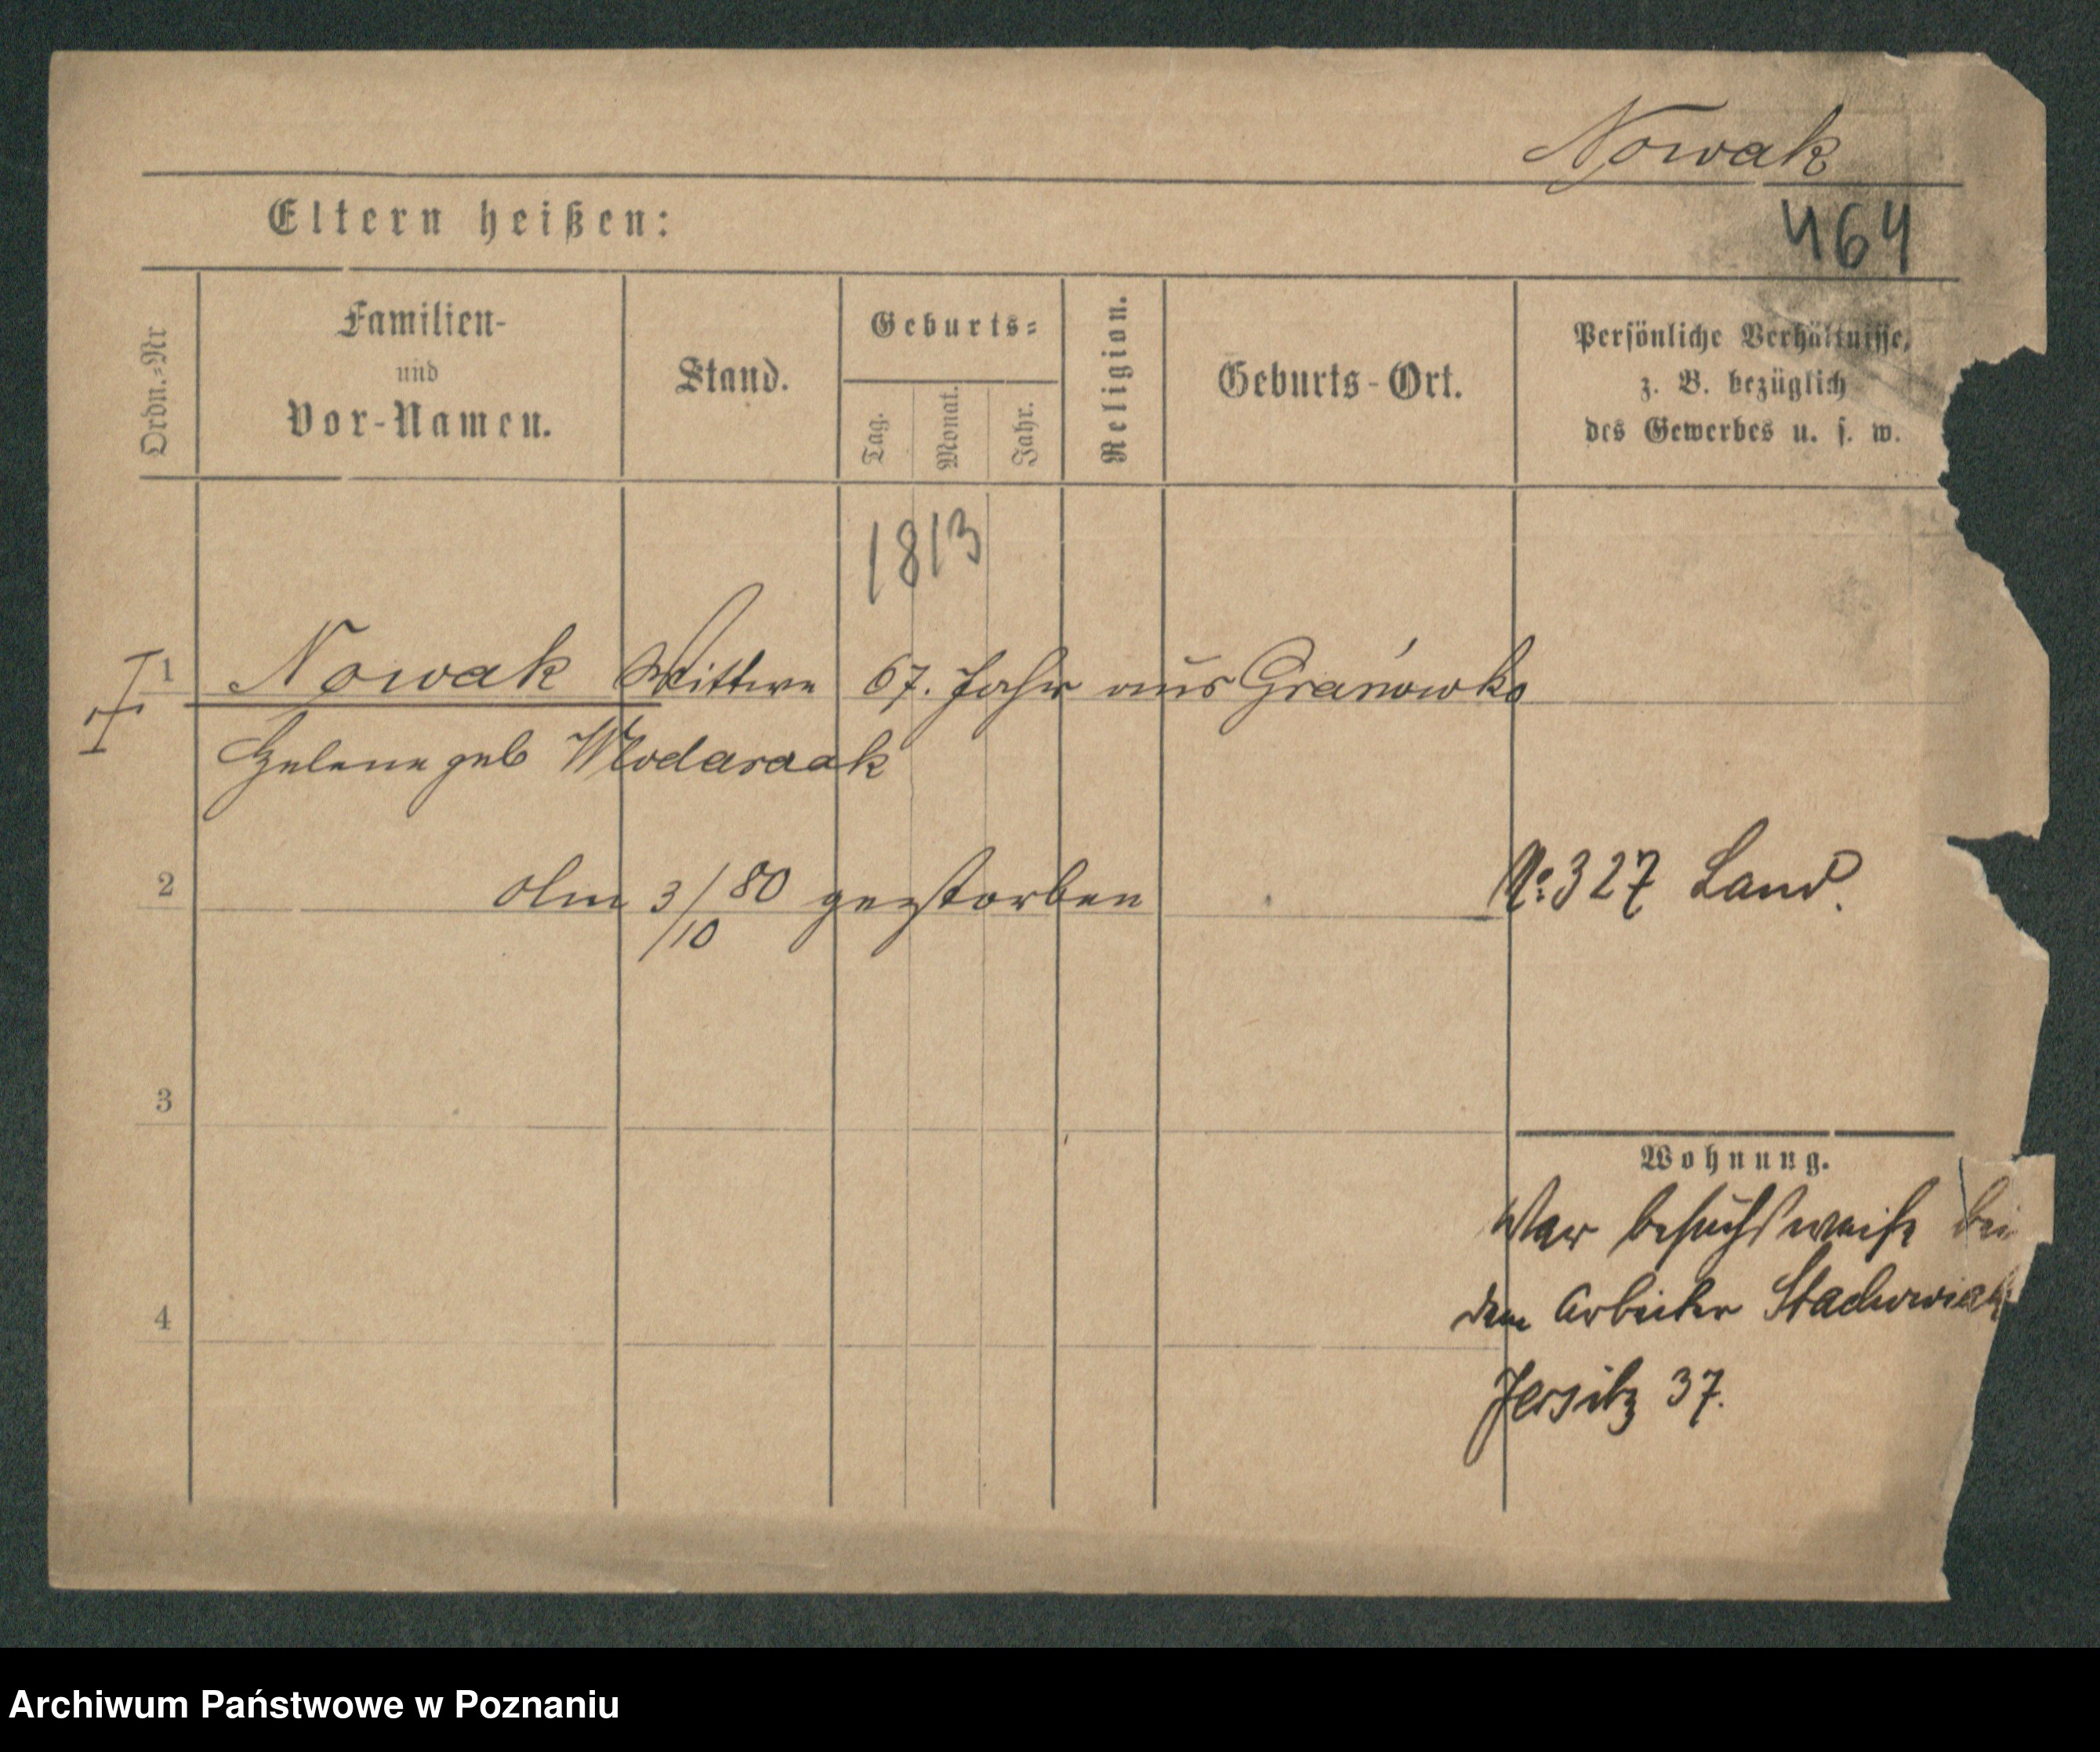 Nowak
464
Eltern heißen:
Ordn.-Nr
Familien-
und
Vor-Namen.
Stand.
Geburts-
Tag.
Monat.
Jahr.
Religion.
Geburts-Ort.
Persönliche Verhältnisse,
z. B. bezüglich
des Gewerbes u. s. w.
1813
1 Nowak Wittwe 67. Jahr aus Granówko
Helene geb Wlodarczak
2 Am 3/10 80 gestorben No: 327 Land.
3
Wohnung.
War besuchsweise bei
4 dem Arbeiter Stachowiak
Jersitz 37.
Archiwum Państwowe w Poznaniu